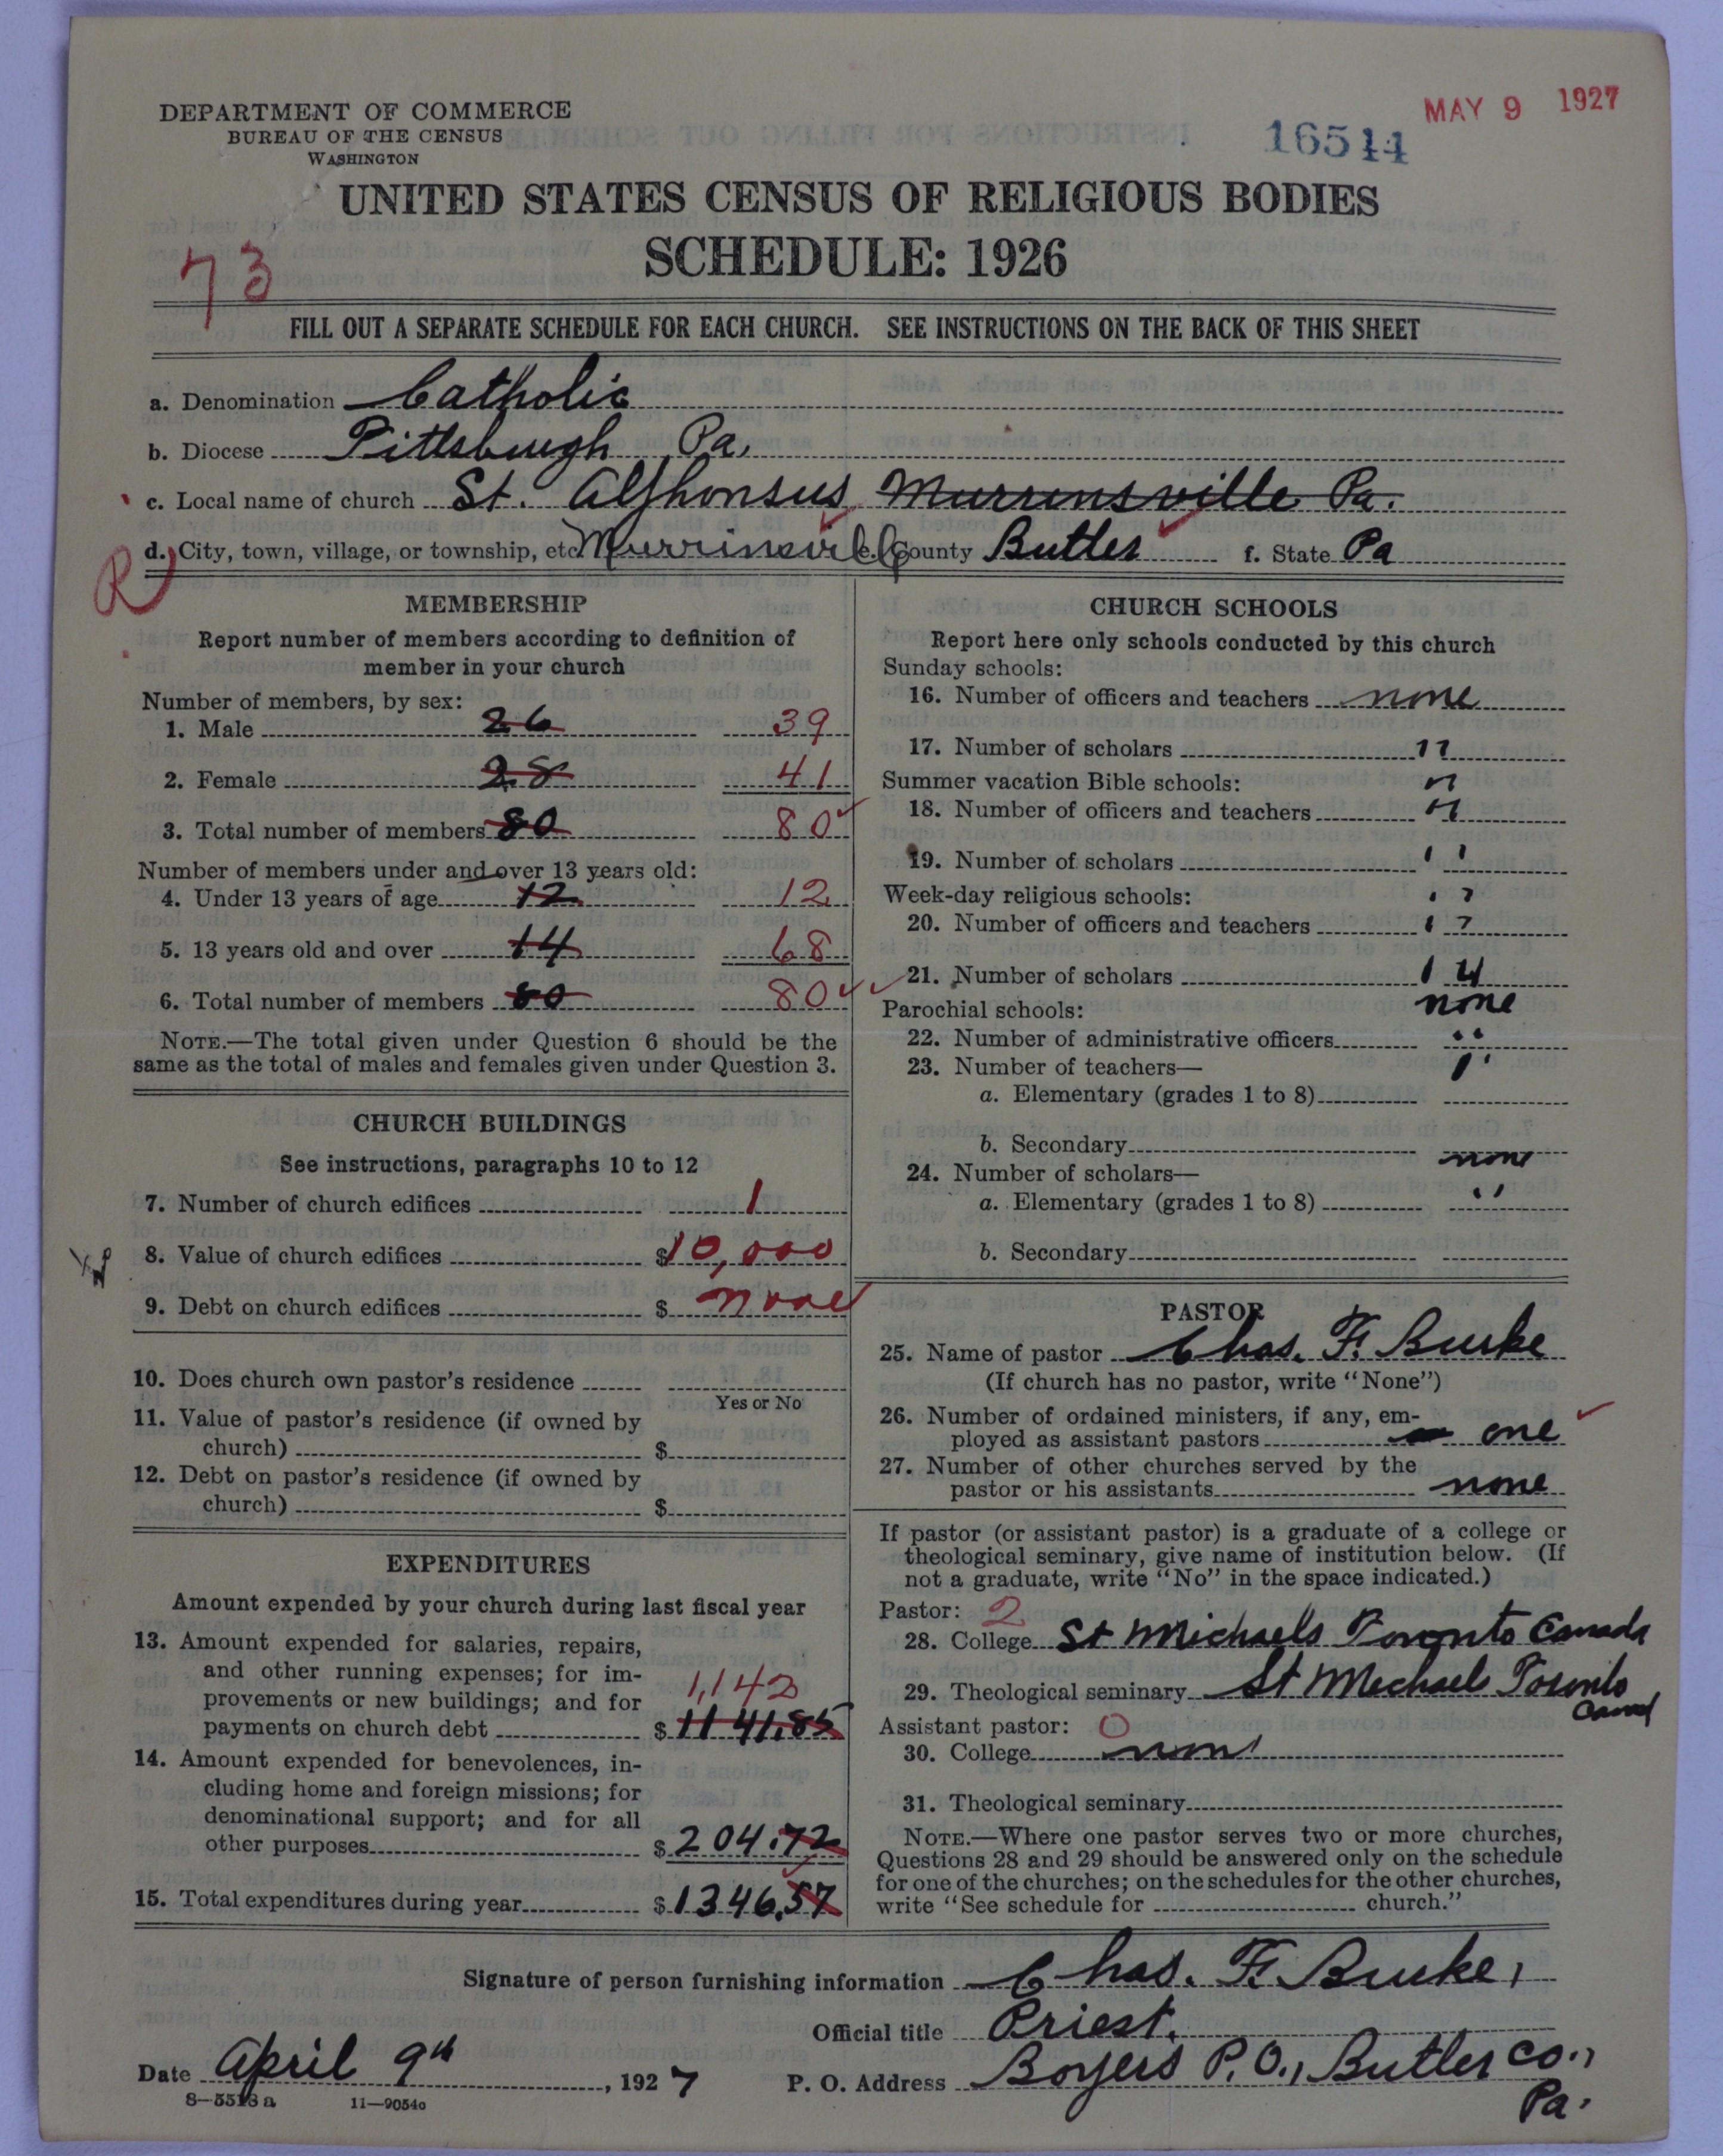 DEPARTMENT OF COMMERCE
BUREAU OF THE CENSUS
WASHINGTON
MAY 9 1927
16514
UNITED STATES CENSUS OF RELIGIOUS BODIES
SCHEDULE: 1926
73
FILL OUT A SEPARATE SCHEDULE FOR EACH CHURCH. SEE INSTRUCTIONS ON THE BACK OF THIS SHEET
a. Denomination Catholic
b. Diocese Pittsburgh Pa.
c. Local name of church St. Alphonsus Murrinsville Pa.
d. City, town, village, or township, etc. Murrinsville e. County Butler f. State Pa
R
MEMBERSHIP
Report number of members according to definition of
member in your church
Number of members, by sex:
1. Male 26 39
2. Female 28 41
3. Total number of members 80 80
Number of members under and over 13 years old:
4. Under 13 years of age 12 12
5. 13 years old and over 14 68
6. Total number of members 80 80
NOTE.—The total given under Question 6 should be the
same as the total of males and females given under Question 3.
CHURCH BUILDINGS
See instructions, paragraphs 10 to 12
7. Number of church edifices 1
8. Value of church edifices $10,000
9. Debt on church edifices $ none
10. Does church own pastor's residence
Yes or No
11. Value of pastor's residence (if owned by
church) $
12. Debt on pastor's residence (if owned by
church) $
EXPENDITURES
Amount expended by your church during last fiscal year
13. Amount expended for salaries, repairs,
and other running expenses; for im-
provements or new buildings; and for 1,142
payments on church debt $1141.85
14. Amount expended for benevolences, in-
cluding home and foreign missions; for
denominational support; and for all
other purposes $204.72
15. Total expenditures during year $1346.57
CHURCH SCHOOLS
Report here only schools conducted by this church
Sunday schools:
16. Number of officers and teachers none
17. Number of scholars "
Summer vacation Bible schools: "
18. Number of officers and teachers "
19. Number of scholars "
Week-day religious schools: "
20. Number of officers and teachers "
21. Number of scholars 14
Parochial schools: none
22. Number of administrative officers "
23. Number of teachers— "
a. Elementary (grades 1 to 8)
b. Secondary none
24. Number of scholars—
a. Elementary (grades 1 to 8) "
b. Secondary
PASTOR
25. Name of pastor Chas. F. Burke
(If church has no pastor, write "None")
26. Number of ordained ministers, if any, em-
ployed as assistant pastors one
27. Number of other churches served by the
pastor or his assistants none
If pastor (or assistant pastor) is a graduate of a college or
theological seminary, give name of institution below. (If
not a graduate, write "No" in the space indicated.)
Pastor: 2
28. College St Michaels Toronto Canada
29. Theological seminary St Michaels Toronto
Canad
Assistant pastor: 0
30. College none
31. Theological seminary
NOTE.—Where one pastor serves two or more churches,
Questions 28 and 29 should be answered only on the schedule
for one of the churches; on the schedules for the other churches,
write "See schedule for church."
Signature of person furnishing information Chas. F. Burke,
Official title Priest.
Date April 9th, 1927 P. O. Address Boyers P.O., Butler Co.,
Pa.
8—5513a 11—9054c